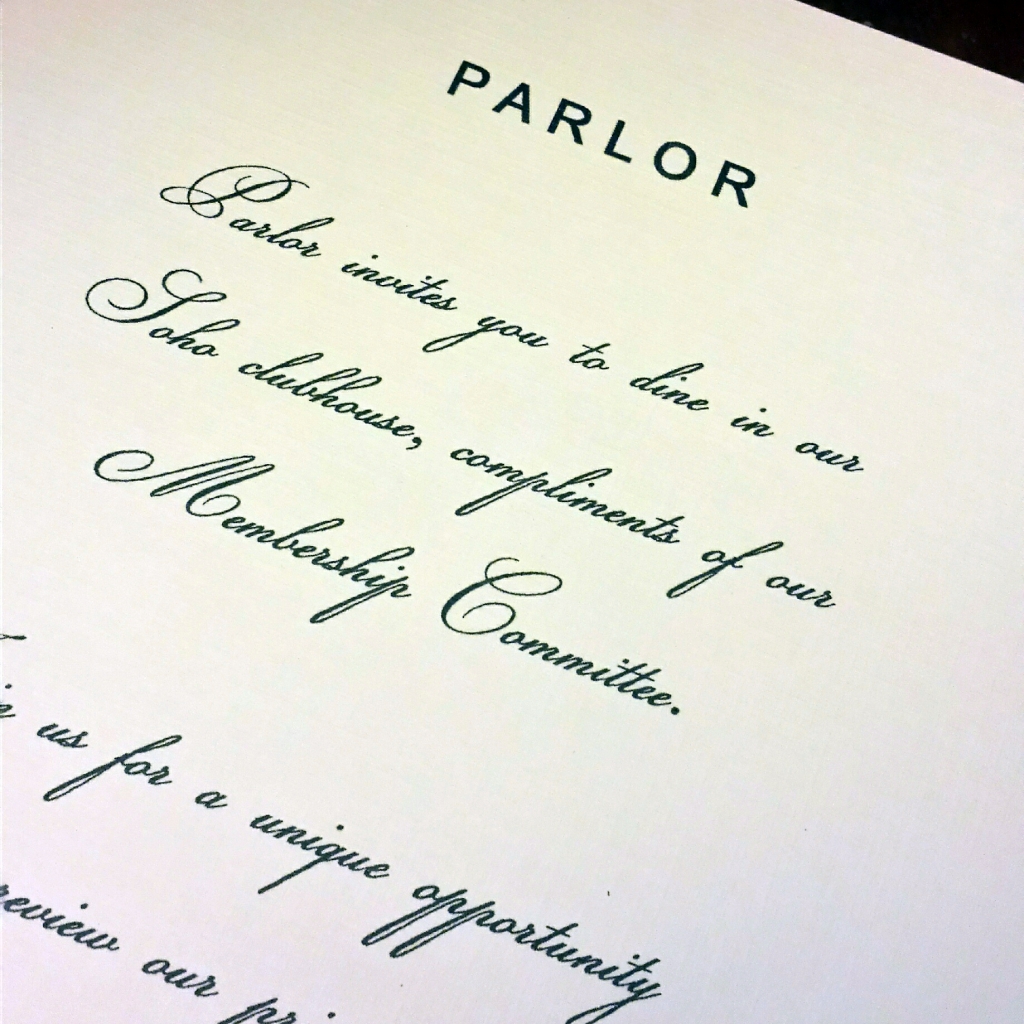 PARLOR
Parlor invites you to dine in our
Soho clubhouse, compliments of our
Membership Committee.
us for a unique opportunity
our